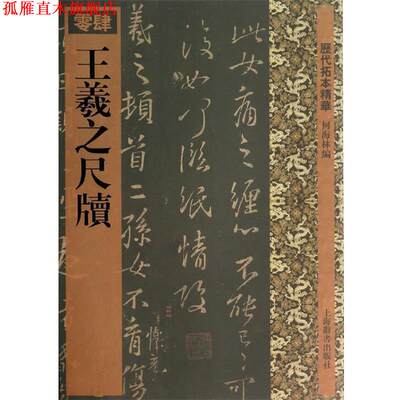 孤雁直木旗舰店
零肆
王羲之尺牘
歷代拓本精華
何海林編
上海辭書出版社
此女痛之纏心不能已已可
復如何臨紙情酸
羲之頓首二孫女不育傷
悼